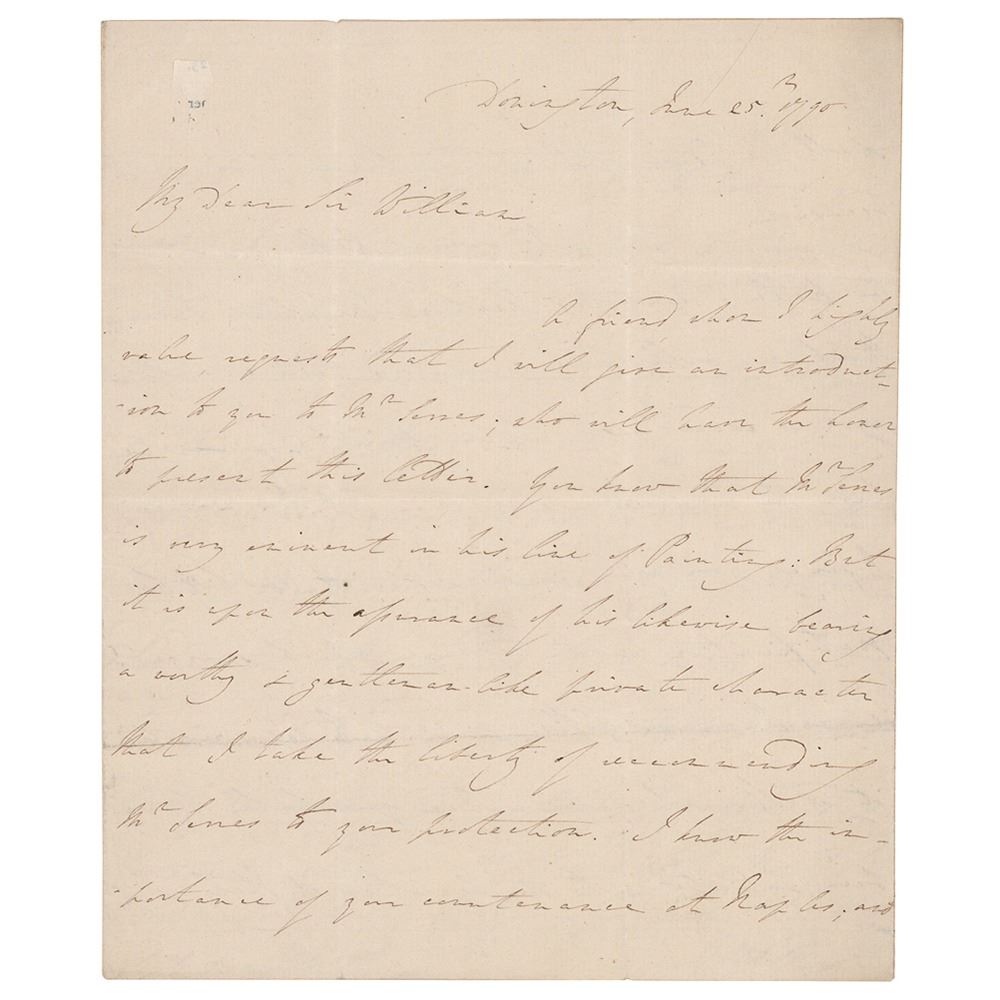 Donington, June 25.th 1790
My Dear Sir William
A friend whom I highly
value, requests that I will give an introduct-
-ion to you to Mr Serres; who will have the honor
to present this letter. You know that Mr Serres
is very eminent in his line of Painting: But
it is upon the assurance of his likewise bearing
a worthy & gentleman-like private character
that I take the liberty of recommending
Mr Serres to your protection. I know the im-
-portance of your countenance at Naples; and